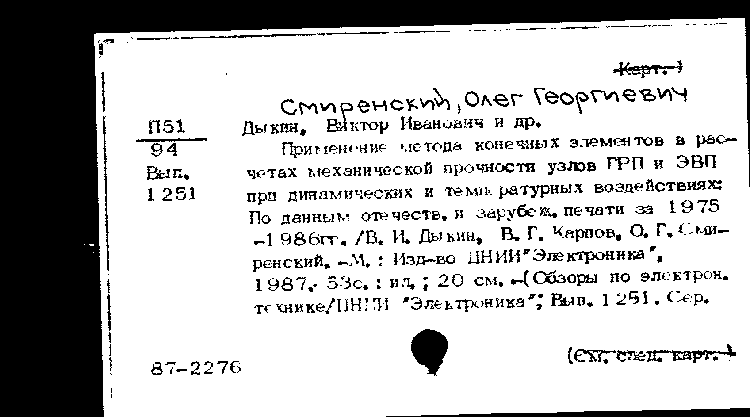 Карт.-)
Смиренский, Олег Георгиевич
П51 Дыкин, Виктор Иванович и др.
94 Применение метода конечных элементов в рас-
Вып. четах механической прочности узлов ГРП и ЭВП
1251 при динамических и температурных воздействиях:
По данным отечеств. и зарубеж. печати за 1975
-1986гг. /В. И. Дыкин, В. Г. Карпов, О. Г. Сми-
ренский. -М. : Изд-во ЦНИИ"Электроника",
1987.- 53с. : ил. ; 20 см. -(Обзоры по электрон.
технике/ЦНИИ "Электроника"; Вып. 1251. Сер.
87-2276 (См. след. карт. )